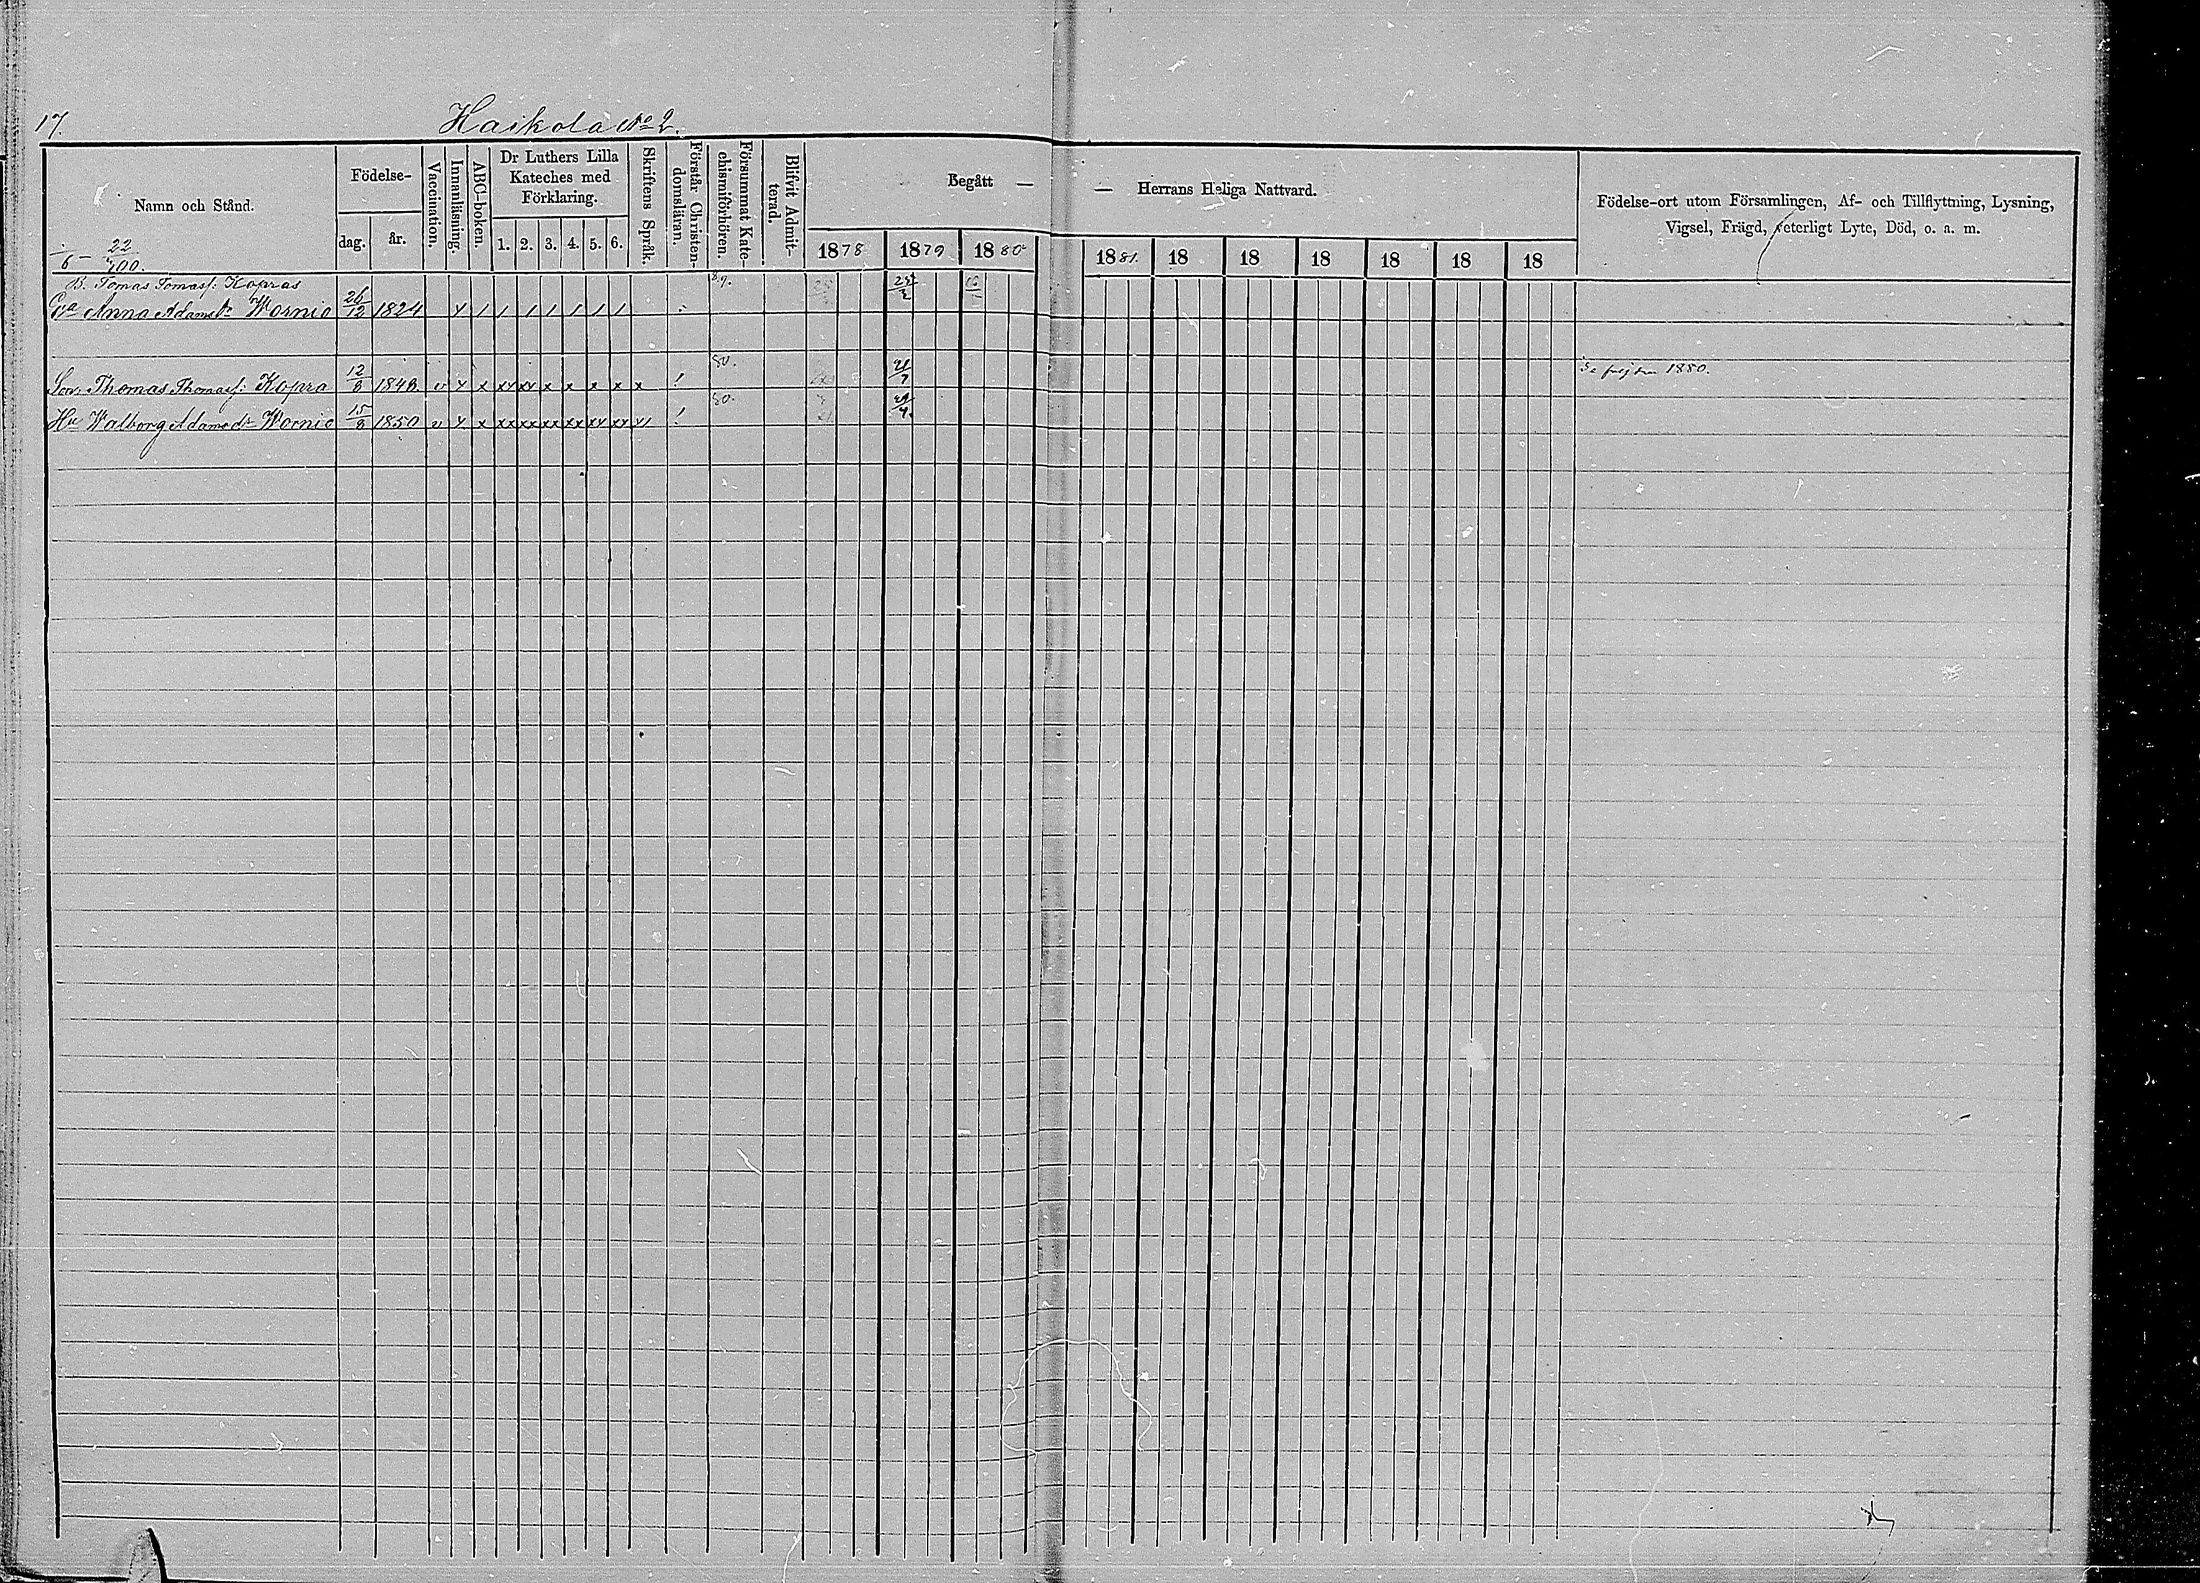 17.
Haikola No 2.
Namn och Stånd.
Födelse-
dag.
år.
Vaccination.
Innanläsning.
ABC-boken.
Dr Luthers Lilla
Kateches med
Förklaring.
1. 2. 3. 4. 5. 6.
Skriftens Språk.
Förstår Christen-
domsläran.
Försummat Kate-
chismiförhören.
Blifvit Admit-
terad.
Begått —
— Herrans Heliga Nattvard.
1878 1879 1880 1881. 18 18 18 18 18 18
Födelse-ort utom Församlingen, Af- och Tillflyttning, Lysning,
Vigsel, Frägd, veterligt Lyte, Död, o. a. m.
22
B. Tomas Tomass: Kopras
Anna Adamsdr Wornio 26/12 1824
Son Thomas Thomass: Kopra 12/8 1848 v x x xx xx x x x x x ! 80.
Hu Walborg Adamsdr Wornio 15/8 1850 v x x xx xx xx xx xx xx ! 80.
1880.